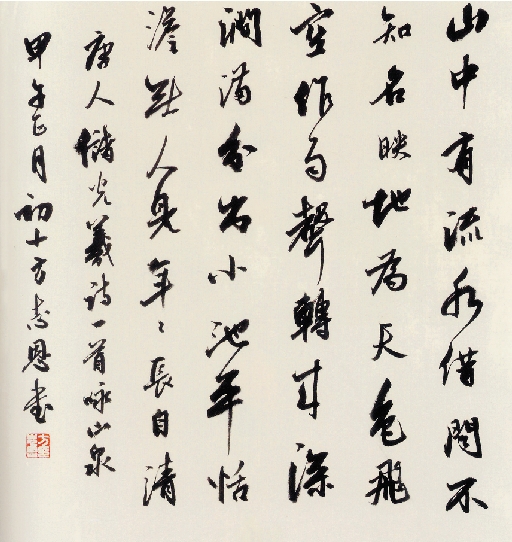 山中有流水借問不
知名映地為天色飛
空作雨聲轉來深
澗滿分出小池平恬
澹無人見年々長自清
唐人儲光羲詩一首咏山泉
甲午正月初十方志恩書